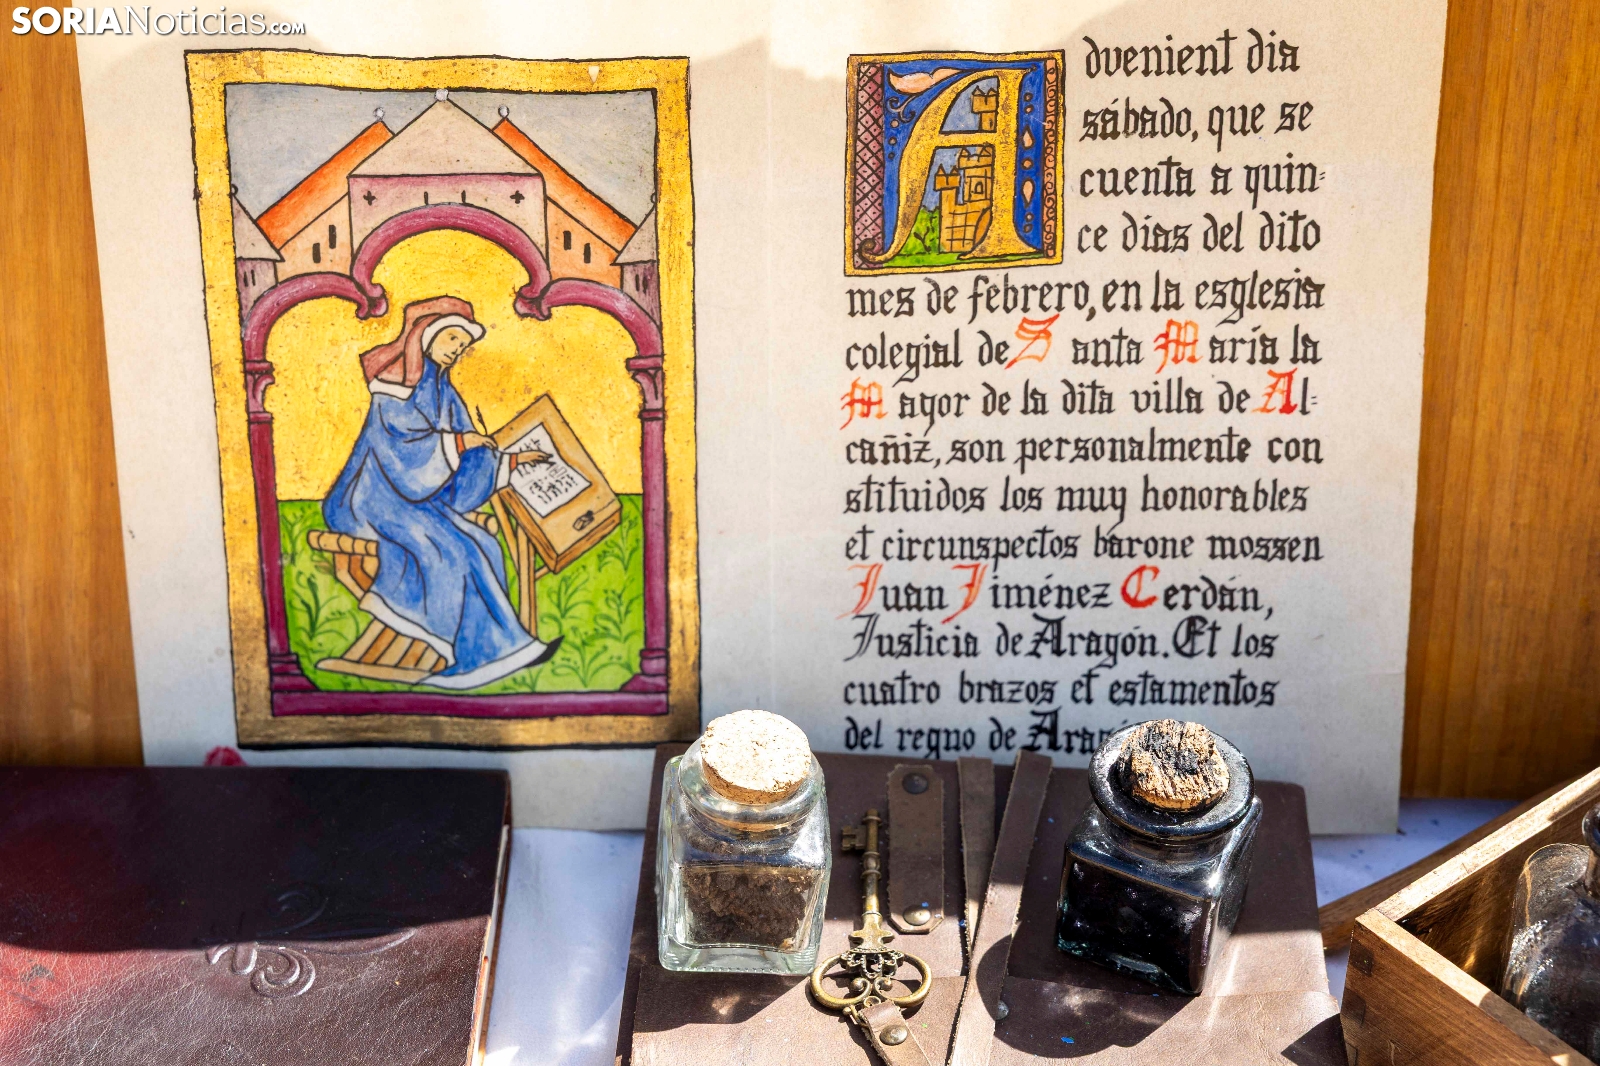 SORIANoticias.com
Advenient dia
sábado, que se
cuenta a quin-
ce dias del dito
mes de febrero, en la esglesia
colegial de Santa María la
Mayor de la dita villa de Al-
cañiz, son personalmente con
stituidos los muy honorables
et circunspectos barone mossen
Juan Jiménez Cerdán,
Justicia de Aragón. Et los
cuatro brazos et estamentos
del regno de